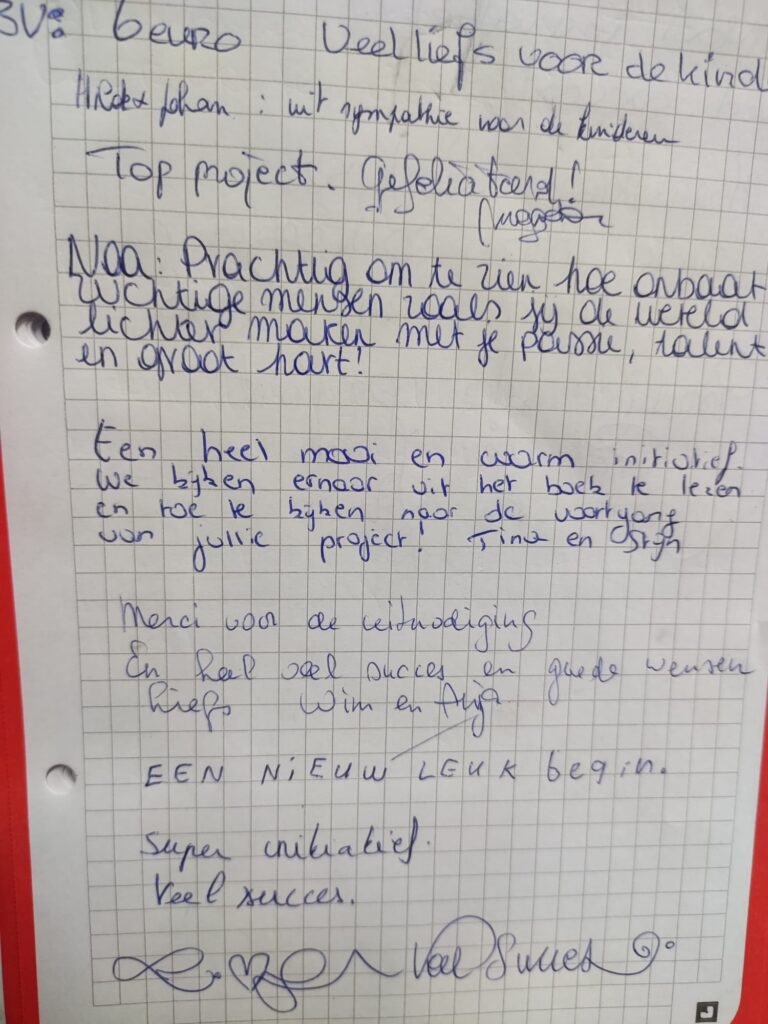 BV: 6euro Veel liefs voor de kind
Johan : uit sympathie voor de kinderen
Top project. Gefeliciteerd!
Noa: Prachtig om te zien hoe onbaat
zuchtige mensen zoals jij de wereld
lichter maken met je passie, talent
en groot hart!
Een heel mooi en warm initiatief.
We kijken ernaar uit het boek te lezen
en toe te kijken naar de voortgang
van jullie project! Tina en Stijn
Merci voor de uitnodiging
En heel veel succes en goede wensen
Liefs Wim en Anja
EEN NiEUW LEUK begin.
Super initiatief.
Veel succes.
Veel Succes